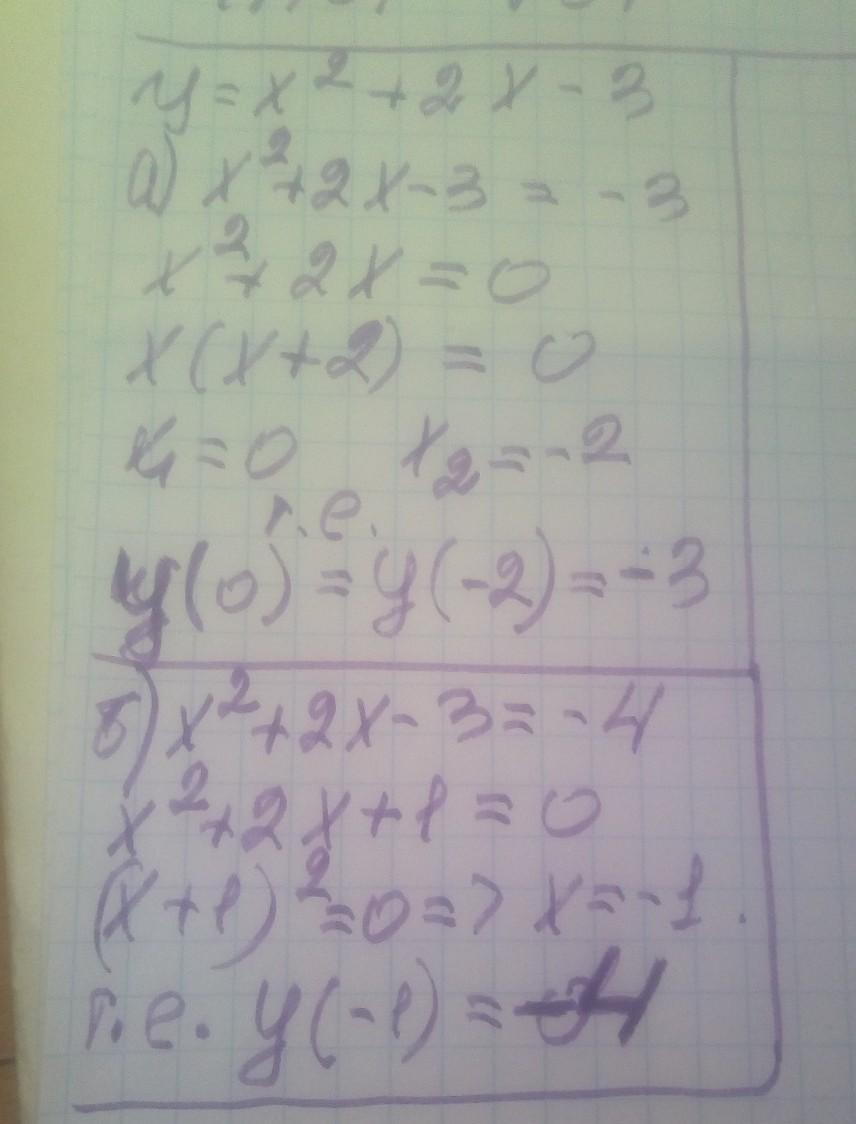 y = x² + 2x - 3
а) x² + 2x - 3 = -3
x² + 2x = 0
x(x + 2) = 0
x₁ = 0 x₂ = -2
т.е.
y(0) = y(-2) = -3
б) x² + 2x - 3 = -4
x² + 2x + 1 = 0
(x + 1)² = 0 => x = -1.
т.е. y(-1) = -4